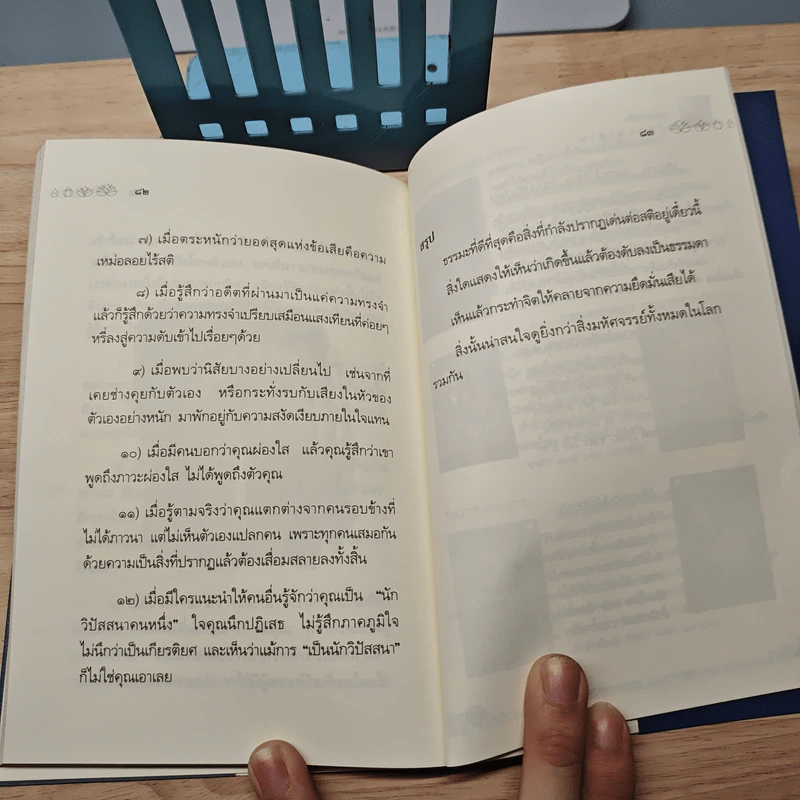 ๘๒
๗) เมื่อตระหนักว่ายอดสุดแห่งข้อเสียคือความ
เหม่อลอยไร้สติ
๘) เมื่อรู้สึกว่าอดีตที่ผ่านมาเป็นแค่ความทรงจำ
แล้วก็รู้สึกด้วยว่าความทรงจำเปรียบเสมือนแสงเทียนที่ค่อยๆ
หรี่ลงสู่ความดับเข้าไปเรื่อยๆด้วย
๙) เมื่อพบว่านิสัยบางอย่างเปลี่ยนไป เช่นจากที่
เคยช่างคุยกับตัวเอง หรือกระทั่งรบกับเสียงในหัวของ
ตัวเองอย่างหนัก มาพักอยู่กับความสงัดเงียบภายในใจแทน
๑๐) เมื่อมีคนบอกว่าคุณผ่องใส แล้วคุณรู้สึกว่าเขา
พูดถึงภาวะผ่องใส ไม่ได้พูดถึงตัวคุณ
๑๑) เมื่อรู้ตามจริงว่าคุณแตกต่างจากคนรอบข้างที่
ไม่ได้ภาวนา แต่ไม่เห็นตัวเองแปลกคน เพราะทุกคนเสมอกัน
ด้วยความเป็นสิ่งที่ปรากฏแล้วต้องเสื่อมสลายลงทั้งสิ้น
๑๒) เมื่อมีใครแนะนำให้คนอื่นรู้จักว่าคุณเป็น “นัก
วิปัสสนาคนหนึ่ง” ใจคุณนึกปฏิเสธ ไม่รู้สึกภาคภูมิใจ
ไม่นึกว่าเป็นเกียรติยศ และเห็นว่าแม้การ “เป็นนักวิปัสสนา”
ก็ไม่ใช่คุณเอาเลย
๘๓
สรุป
ธรรมะที่ดีที่สุดคือสิ่งที่กำลังปรากฏเด่นต่อสติอยู่เดี๋ยวนี้
สิ่งใดแสดงให้เห็นว่าเกิดขึ้นแล้วต้องดับลงเป็นธรรมดา
เห็นแล้วกระทำจิตให้คลายจากความยึดมั่นเสียได้
สิ่งนั้นน่าสนใจดูยิ่งกว่าสิ่งมหัศจรรย์ทั้งหมดในโลก
รวมกัน